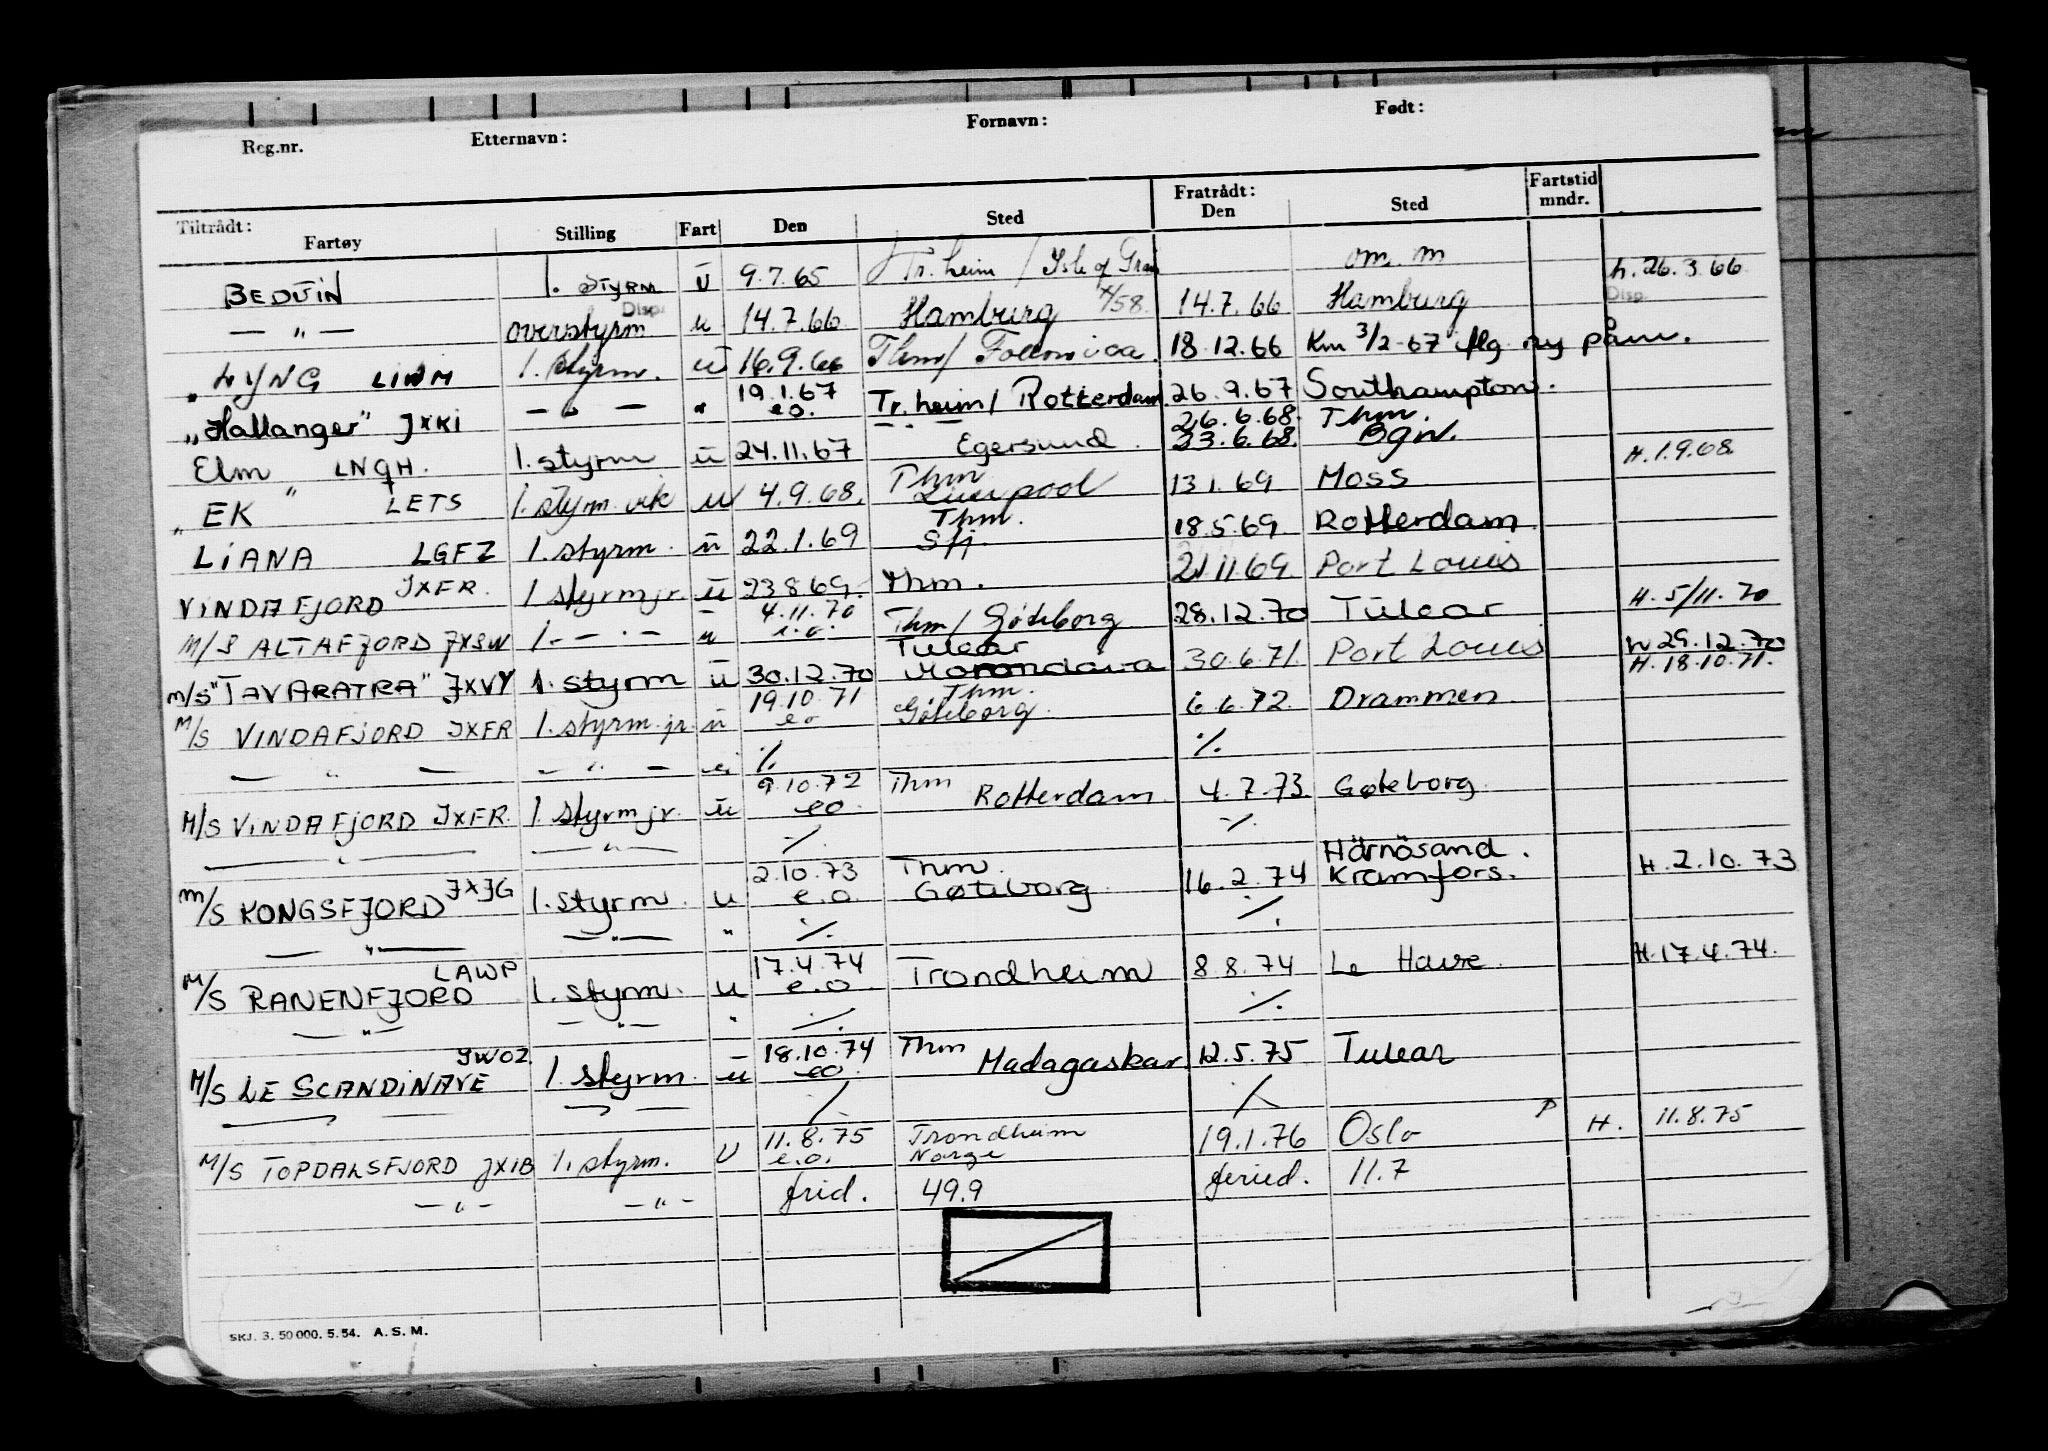 Reg.nr. Etternavn: Fornavn: Født:
Tiltrådt: Fratrådt: Fartstid
Fartøy Stilling Fart Den Sted Den Sted mndr.
BEDUIN 1. STYRM U 9.7.65 Tr.heim / Isle of om. m h. 26.3.66
— " — overstyrm Disp. u 14.7.66 Hamburg 14.7.66 Hamburg Disp.
" LYNG 1. styrm. u 16.9.66 Thm/ 18.12.66 Km 3/2-67 ny
"Hallanger" JXKI — " — " 19.1.67 e.o. Tr.heim / Rotterdam 26.9.67 Southampton.
Elm LNQH. 1. styrm u 24.11.67 Egersund 26.6.68. Thm. 23.6.68. Bgn.
" EK " LETS 1. styrm. vik u 4.9.68. Thm Liverpool 13.1.69 Moss H. 1.9.68.
LIANA LGFZ 1. styrm. u 22.1.69 Thm. Sfj. 18.5.69 Rotterdam
VINDAFJORD JXFR. 1 styrm jr. u 23.8.69. Thm. 21.11.69. Port Louis
M/S ALTAFJORD JXSW 1. — " — u 4.11.70 e.o. Thm/ Göteborg 28.12.70 Tulear H. 5/11.70
M/S "TAVARATRA" JXVY 1. styrm u 30.12.70 Tulear Morondava 30.6.71. Port Louis h 29.12.70
H. 18.10.71.
M/S VINDAFJORD JXFR 1. styrm. jr. u 19.10.71 eo Thm. Göteborg. 6.6.72. Drammen.
— " — — " — " ./. ./.
M/S VINDAFJORD JXFR. 1. styrm jr. u 9.10.72 eo Thm Rotterdam 4.7.73. Gøteborg.
— " — — " — ./. ./.
M/S KONGSFJORD JXJG 1. styrm. u 2.10.73 e.o. Thm. Gøteborg 16.2.74 Härnösand. Kramfors. H. 2.10.73
— " — — " — " ./. ./.
M/S RANENFJORD LAWP 1. styrm. u 17.4.74 e.o Trondheim 8.8.74 Le Havre H. 17.4.74.
— " — — " — " ./. ./.
M/S LE SCANDINAVE JWOZ 1. styrm. u 18.10.74 eo Thm Madagaskar 12.5.75 Tulear
M/S TOPDALSFJORD JXIB 1. styrm. U 11.8.75 e.o. Trondheim Norge 19.1.76 Oslo P H. 11.8.75
— " — — " — frid. 49.9 feried. 11.7
SKJ. 3. 50 000. 5. 54. A. S. M.